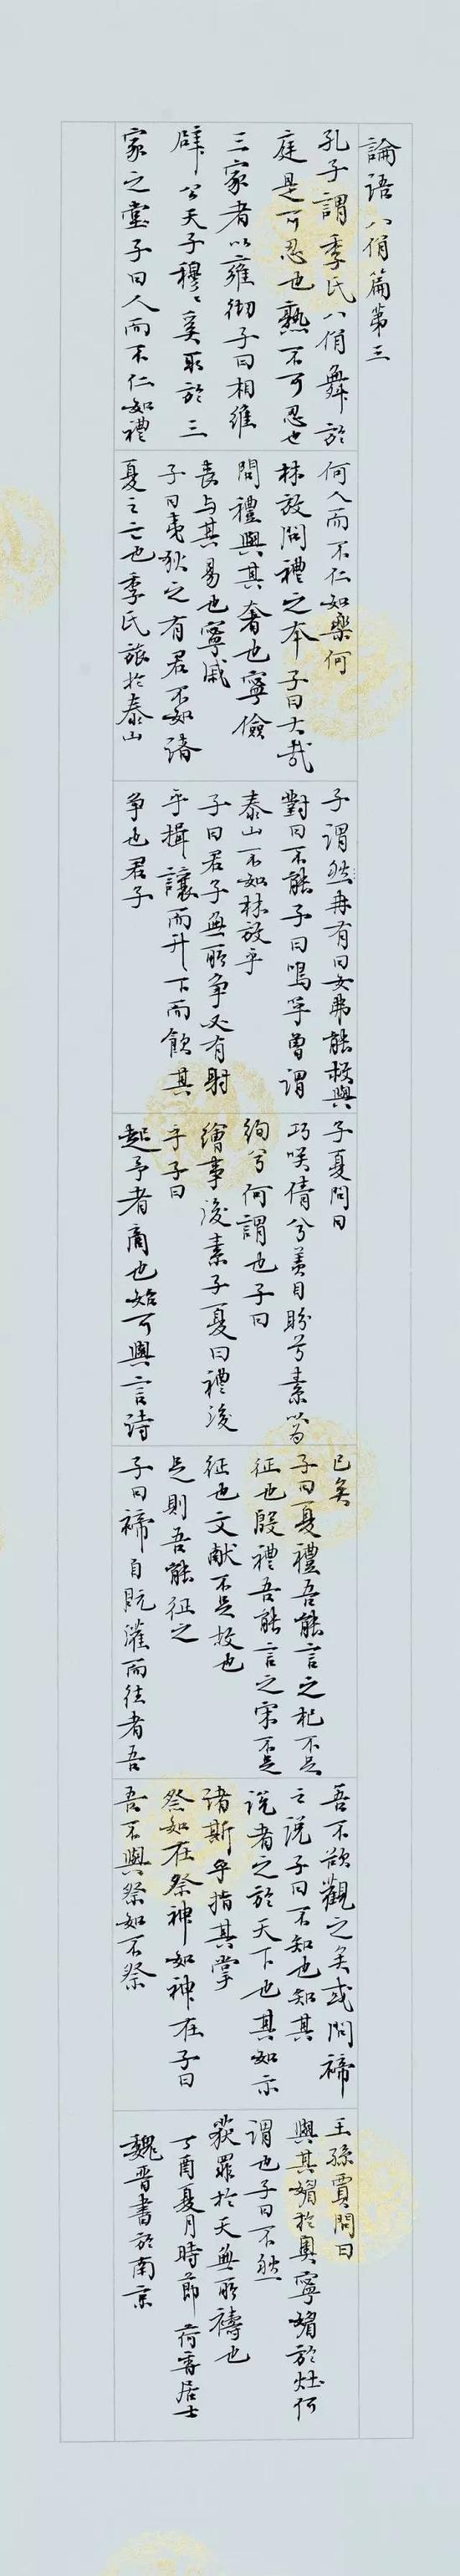 論語八佾篇第三
孔子謂季氏八佾舞於
庭是可忍也熟不可忍也
三家者以雍彻子曰相維
辟公天子穆〻奚取於三
家之堂子曰人而不仁如禮
何人而不仁如樂何
林放問禮之本子曰大哉
問禮與其奢也寧儉
喪与其易也寧戚
子曰夷狄之有君不如诸
夏之亡也季氏旅於泰山
子謂然冉有曰女弗能救與
對曰不能子曰嗚乎曾谓
泰山不如林放乎
子曰君子無所争必有射
乎揖讓而升下而飲其
争也君子
子夏問曰
巧咲倩兮美目盼兮素以為
絢兮何謂也子曰
繪事後素子夏曰禮後
乎子曰
起予者商也始可與言诗
已矣
子曰夏禮吾能言之杞不足
征也殷禮吾能言之宋不足
征也文献不足故也
足則吾能征之
子曰禘自既灌而往者吾
吾不欲觀之矣或問禘
之说子曰不知也知其
说者之於天下也其如示
诸斯乎指其掌
祭如在祭神如神在子曰
吾不與祭如不祭
王孫賈問曰
與其媚於奥寧媚於灶何
谓也子曰不然
获罪於天無所禱也
丁酉夏月時節荷香居士
魏晋書於南京